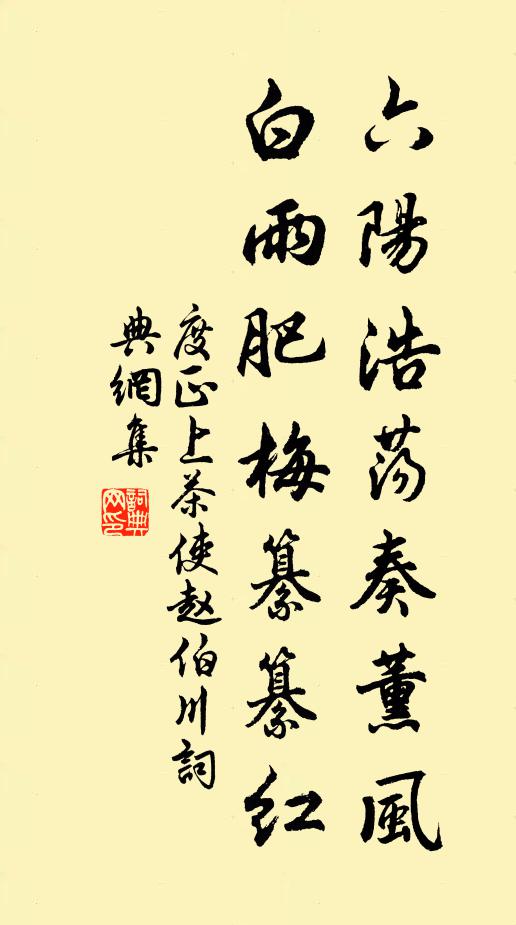 六陽浩蕩奏薰風
白雨肥梅纂纂紅
度正上茶使赵伯川詞
典網集
詞典網印